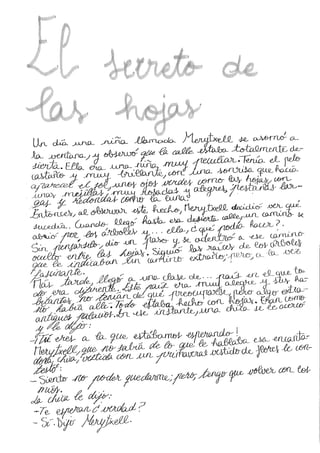 El secreto de
las hojas
Un día una niña llamada Merytxell se asomó a
la ventana, y observó que la calle estaba totalmente de-
sierta. Ella era una niña, muy peculiar. Tenía el pelo
castaño y muy brillante, con una sonrisa que hacía
aparecer el sol, unos ojos verdes como las hojas, con
unas mejillas, muy rosadas y alegres, pestañas lar-
gas y redondas como la luna!
Entonces, al observar este hecho, Merytxell decidió ver qué
sucedía. Cuando llegó hasta esa desierta calle, un camino se
abrió por los árboles y... ella, ¿qué podía hacer?.
Sin pensárselo, dio un paso y se adentró a ese camino
oculto entre las hojas. Siguió las raíces de los árboles
que le indicaban un camino extraño; pero, a la vez
fascinante.
Más tarde, llegó a una clase de... país en el que to-
do era diferente. Este país era muy alegre y sus ha-
bitantes no tenían de qué preocuparse, pero algo extra-
ño había allí. Todo estaba, hecho con hojas. Eran como
antiguos palacios. En ese instante, una chica se le acercó
y le dijo:
-¡Tú eres a la que estábamos esperando!
Merytxell, que no sabía de lo que le hablaba esa encanta-
dora, chica, vestida con un primaveral vestido de flores le con-
testó:
- Siento no poder quedarme; pero, tengo que volver con los
míos.
La chica le dijo:
-Te esperan ¿verdad?
- Sí. Dijo Merytxell.